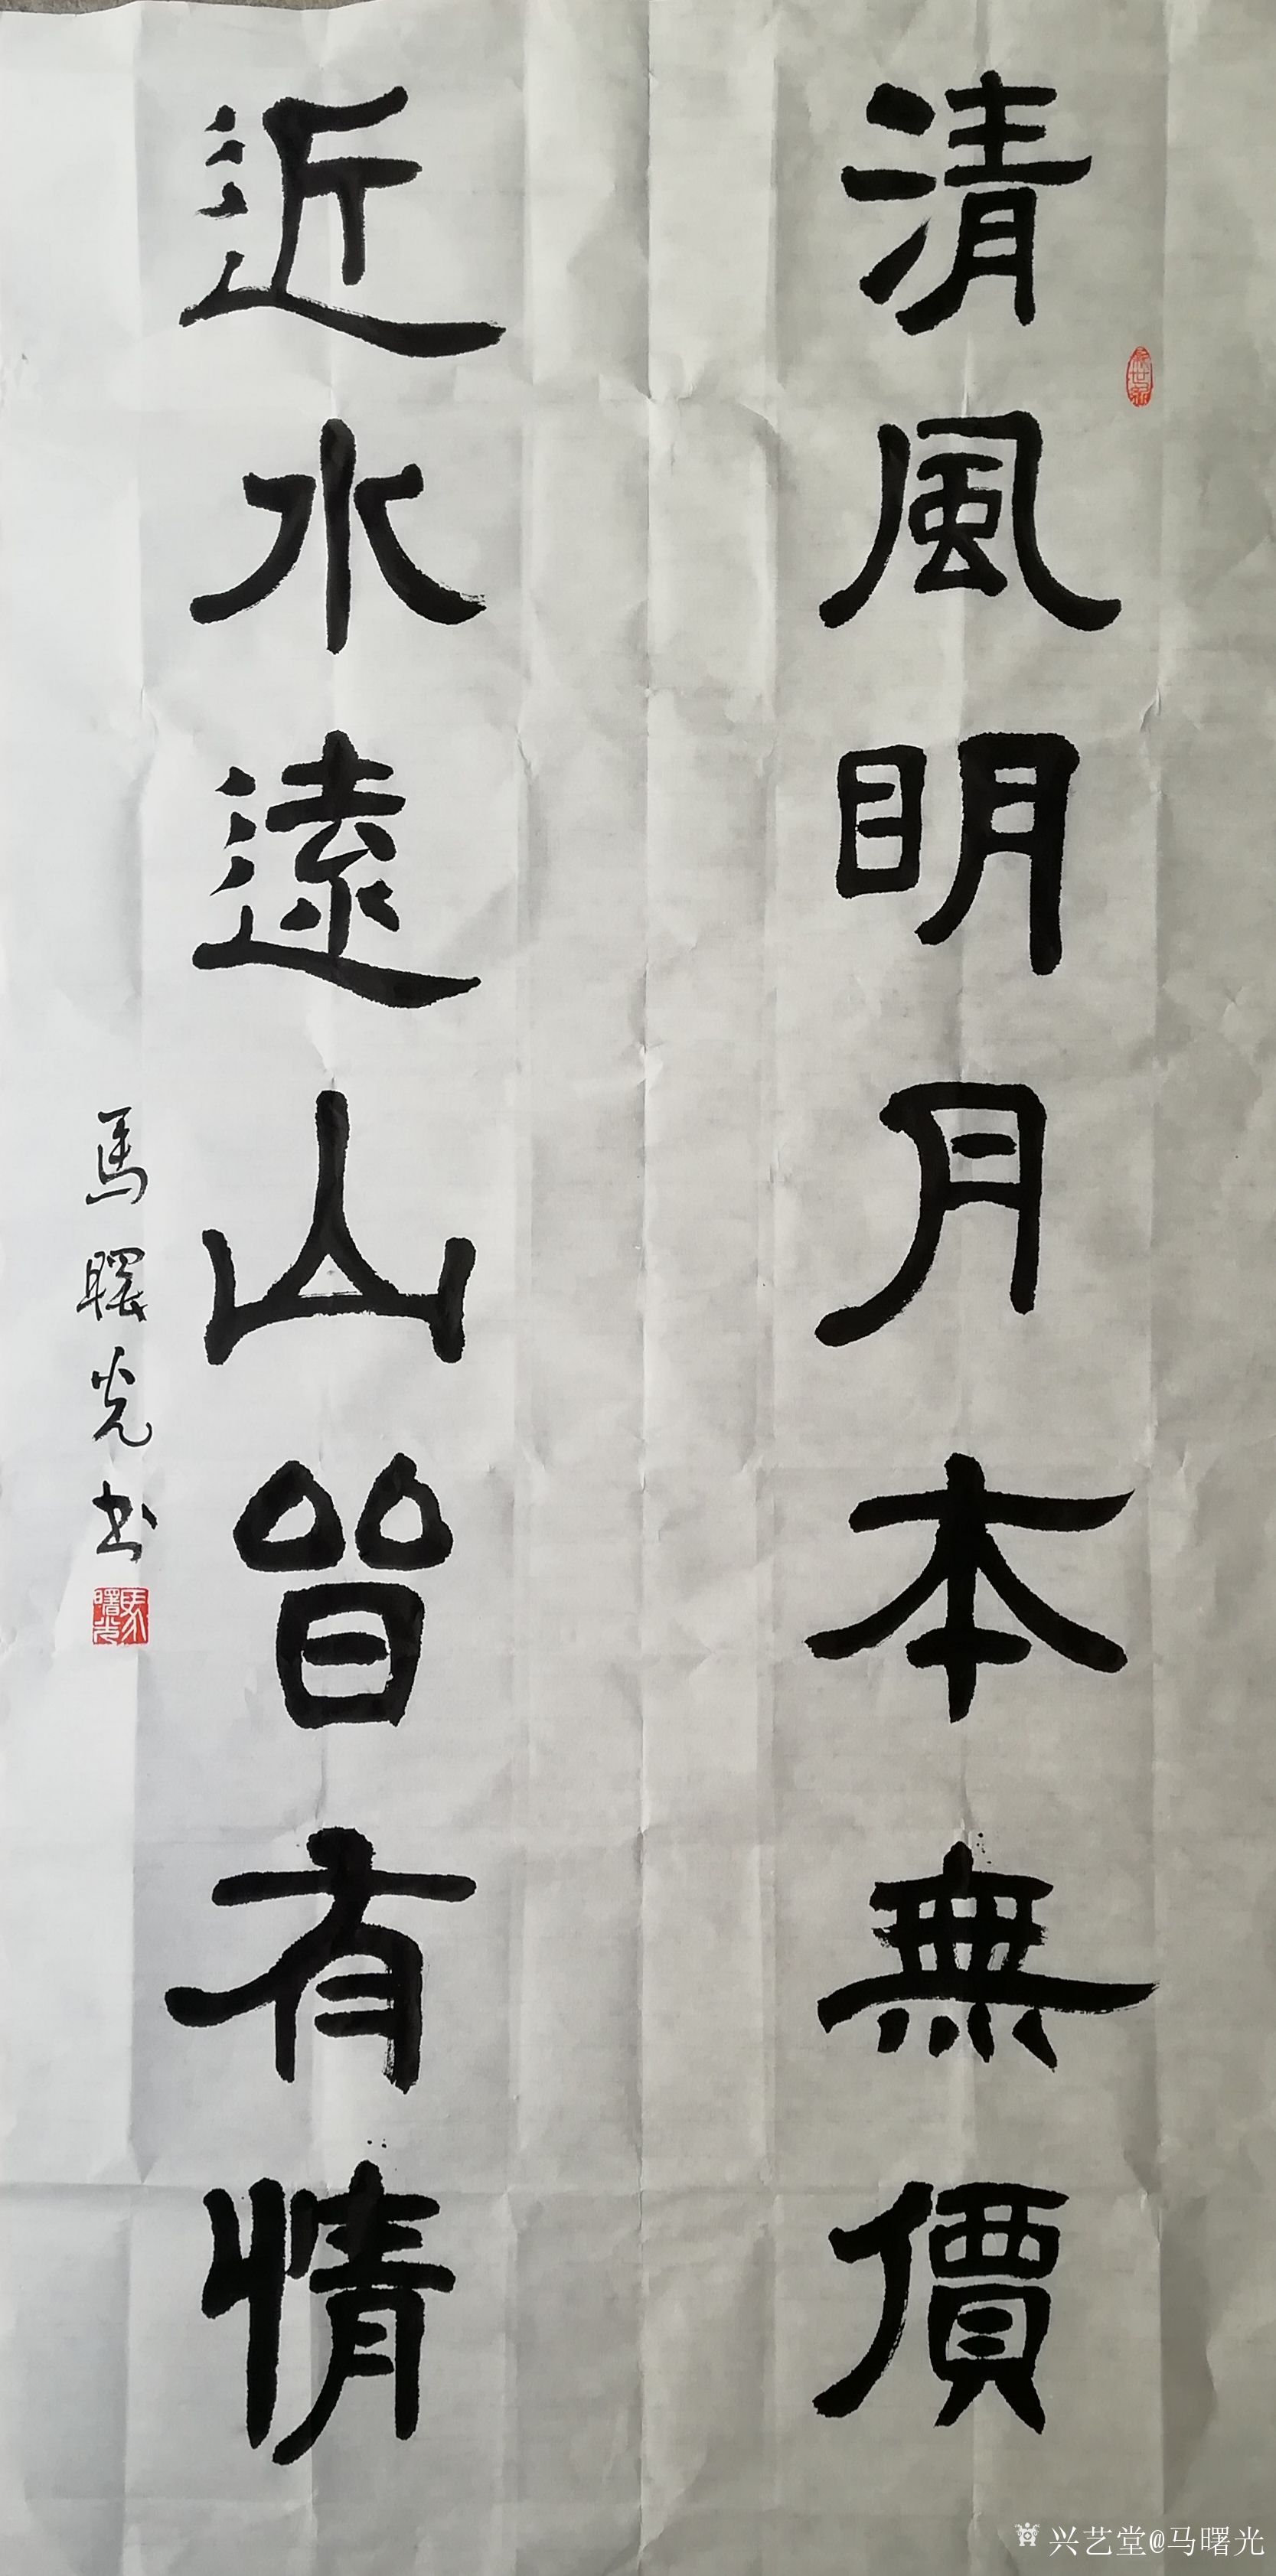 清風明月本無價
近水遠山皆有情
馬曙光书
馬曙光
兴艺堂@马曙光